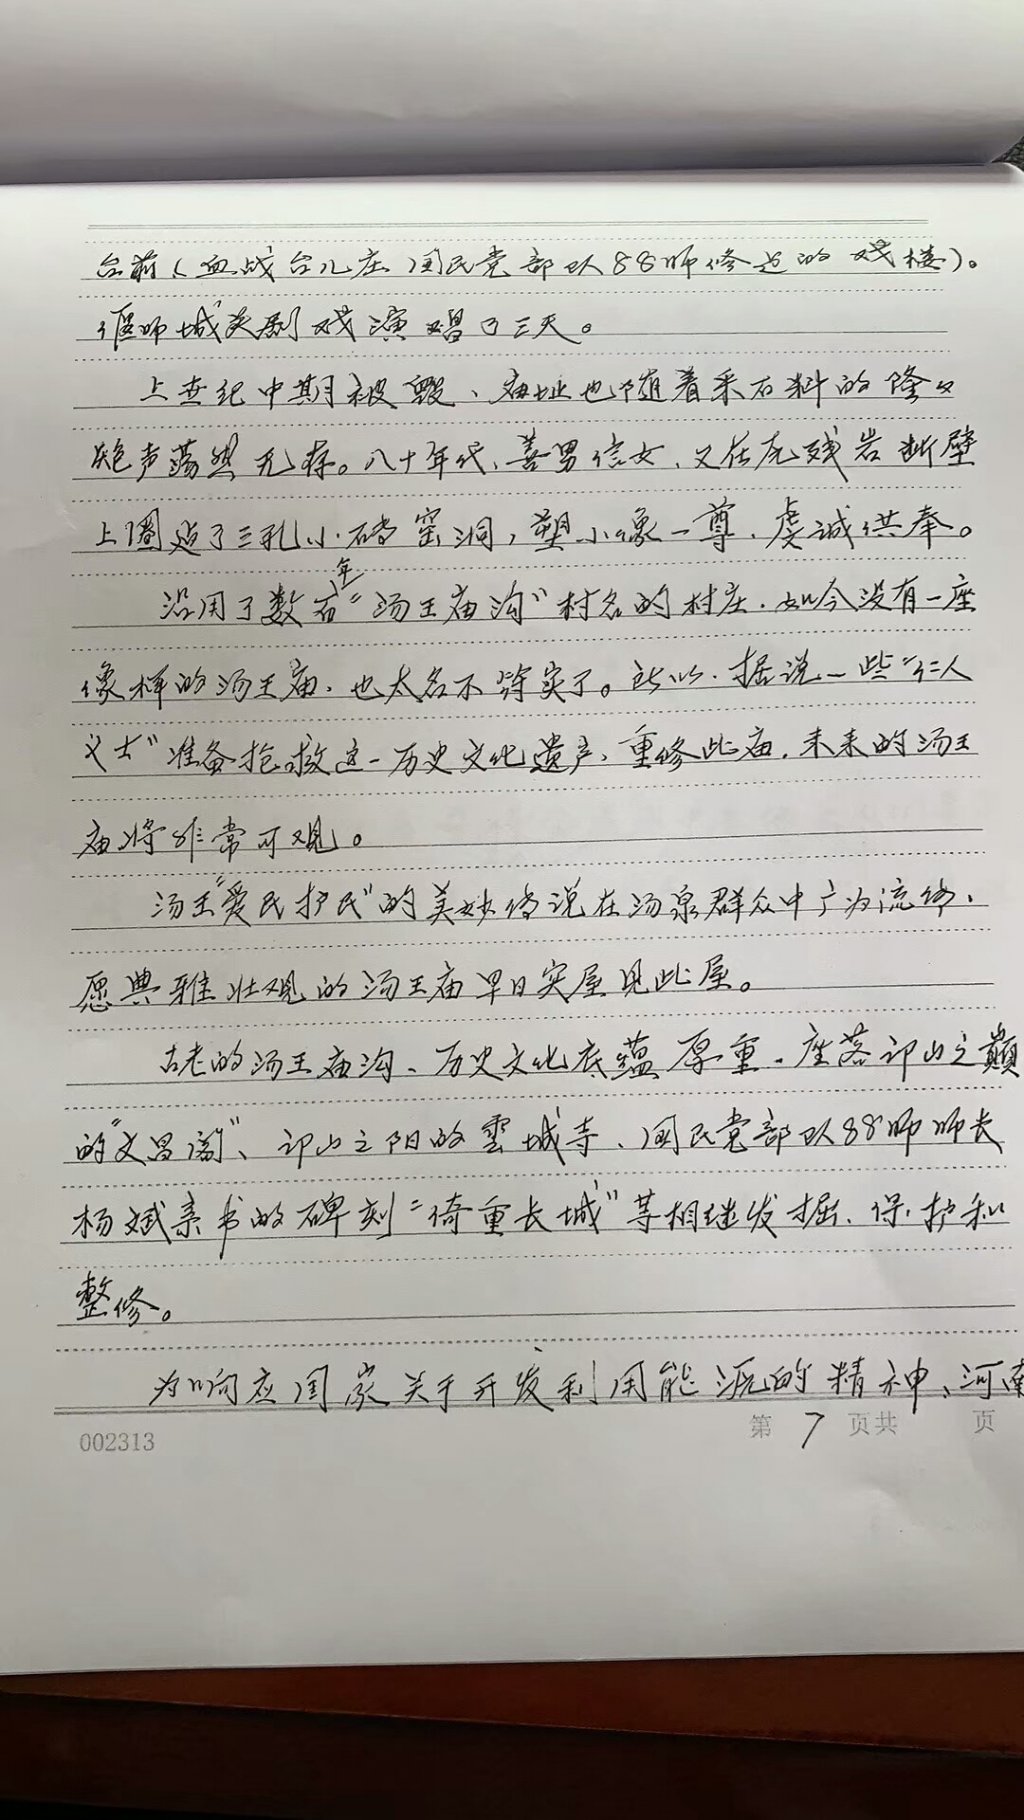 台前（血战台儿庄国民党部队88师修造的戏楼）。
偃师城关剧戏演唱了三天。
上世纪中期被毁、庙址也随着采石料的隆々
炮声荡然无存。八十年代、善男信女、又在危残岩断壁
上圈造了三孔小砖窑洞，塑小像一尊、虔诚供奉。
沿用了数百年“汤王庙沟”村名的村庄、如今没有一座
像样的汤王庙、也太名不符实了。所以、据说一些“仁人
义士”准备抢救这一历史文化遗产、重修此庙、未来的汤王
庙将非常可观。
汤王“爱民护民”的美妙传说在汤泉群众中广为流传、
愿典雅壮观的汤王庙早日实屋见此屋。
古老的汤王庙沟、历史文化底蕴厚重、座落印山之巅
的“文昌阁”、印山之阳的雲城寺、国民党部队88师师长
杨斌亲书的碑刻“倚重长城”等相继发掘、保护和
整修。
为响应国家关于开发利用能源的精神、河南
002313
第7页共 页